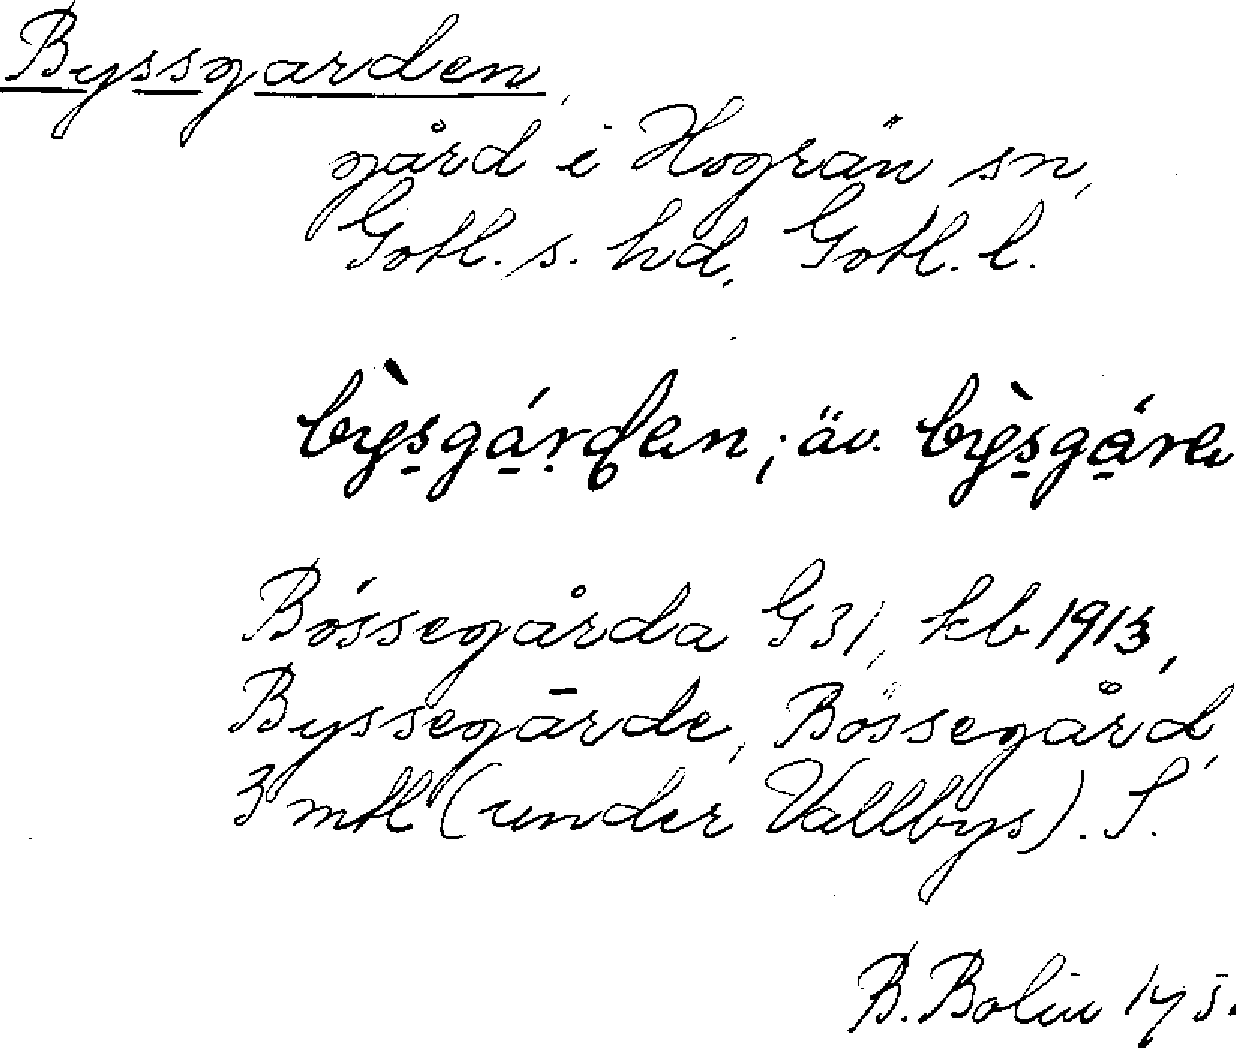 Byssgarden,
gård i Hogrän sn,
Gotl. s. hd, Gotl. l.
bỳsgárden; äv. bỳsgáren
Bössegårda G31, kb 1913,
Byssegārde, Bössegård,
3 mtl (under Vallbys). S.
B. Bolin